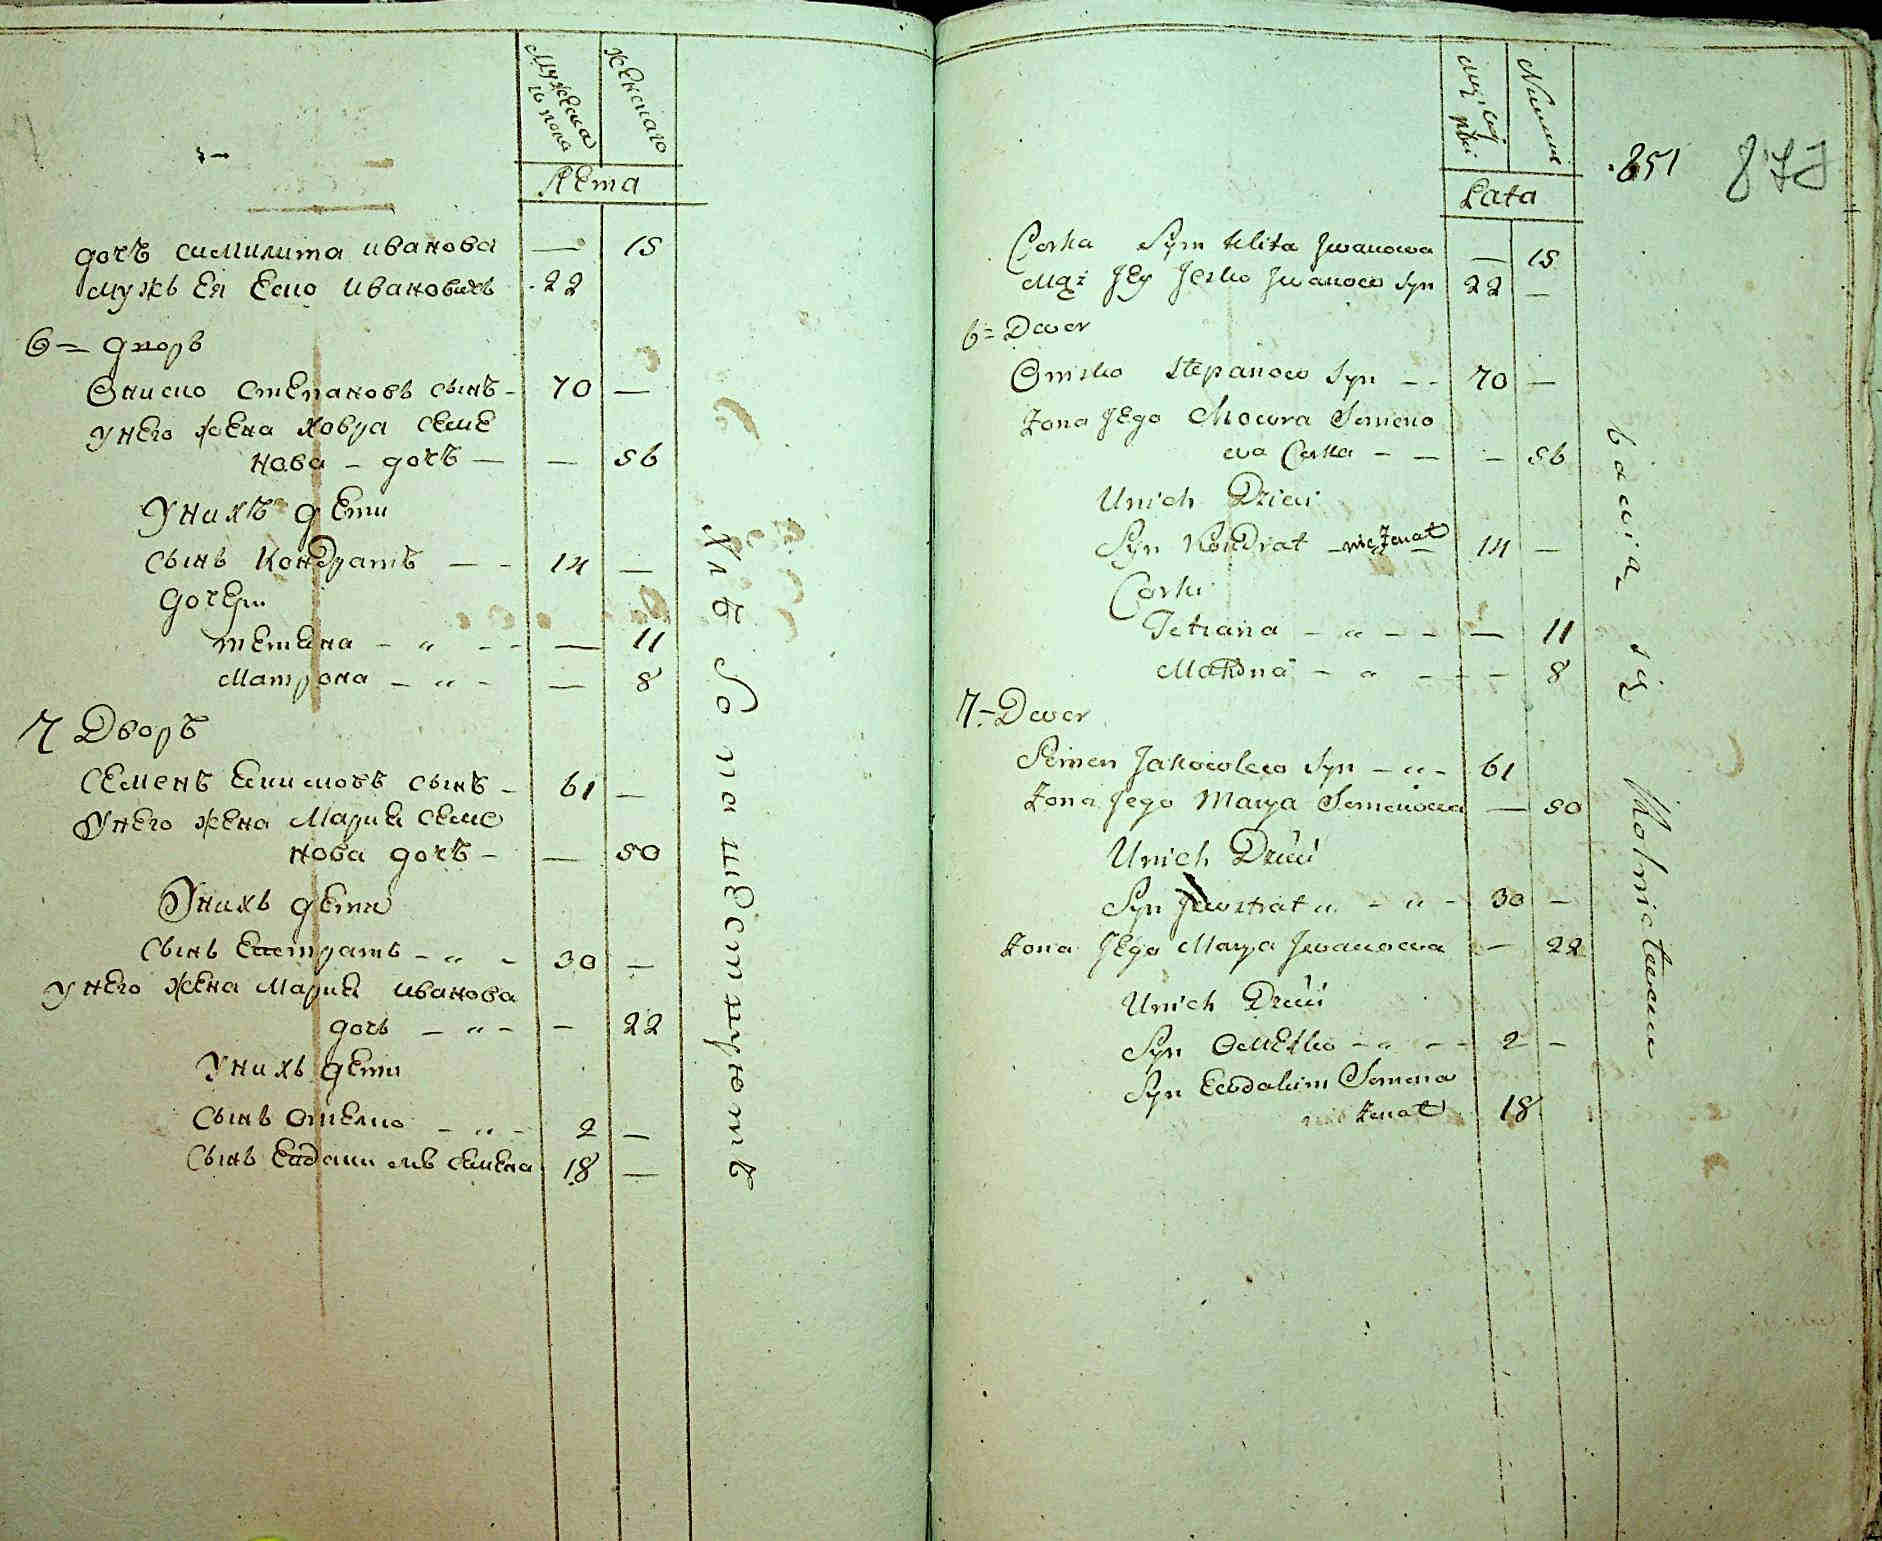 мужеска
го пола
женскаго
лета
дочъ симилита иванова — 15
мужъ Ея Еско Ивановичъ 22
6 = дворъ
Ониско Степановъ сынъ - 70 —
унего жена Ховра семе
нова - дочъ — — 56
унихъ дети
сынъ Кондратъ — - 14 —
дочери
тетяна - „ - - — 11
Матрона - „ - — 8
7 Дворъ
Семенъ сынъ - 61 —
унего жена Мария семе
нова дочъ - — 50
унихъ дети
сынъ Евстратъ - „ - 30 —
унего жена Мария иванова
дочъ - „ - — 22
унихъ дети
сынъ Омелко - „ - 2 —
сынъ Евдаки мъ семена 18 —
Lata
851
877
Corka Symklita Jwanowa — 15
Mąż Jey Jesko Jwanow Syn 22 —
6 = Dwor
Onisko Stepanow Syn - - 70 —
Żona Jego Chowra Semeno
wa Corka - — — 56
Unich Dzieci
Syn Kondrat - nieżenat 14 —
Corki
Tetiana - „ - - — 11
Matrona - „ - - — 8
7 - Dwor
Semen Jakowlew Syn - „ - 61
Żona Jego Marya Semenowa — 50
Unich Dzieci
Syn Jewstrat „ - „ - 30 —
Żona Jego Marya Jwanowa — 22
Unich Dzieci
Syn Omelko - „ - - 2 —
Syn Ewdakim Semena
nie żenat 18
bawią się Rolnictwem